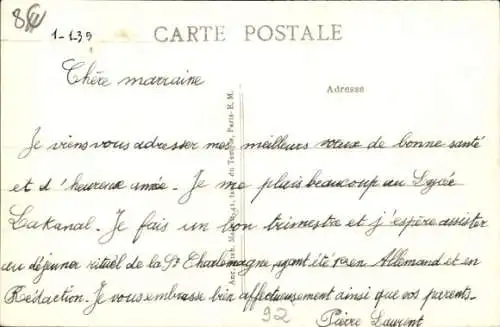 1-1-39
CARTE POSTALE
Chère marraine
Adresse
Je viens vous adresser mes meilleurs vœux de bonne santé
et d'heureuse année. Je me plais beaucoup au Lycée
Lakanal. Je fais un bon trimestre et j'espère assister
au déjeuner rituel de la St Charlemagne ayant été 1er en Allemand et en
Rédaction. Je vous embrasse bien affectueusement ainsi que vos parents.
Pierre Laurent
92
du Temple, Paris - E. M.